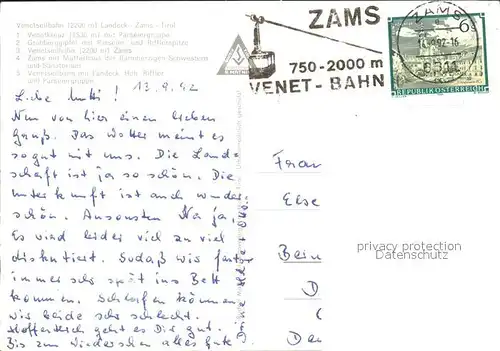 Venetseilbahn (2200 m) Landeck - Zams - Tirol
1 Venetkreuz (2530 m) mit Parseiergruppe
2 mit
3 Venetseilbahn (2200 m) Zams
4 Zams mit Mutterhaus der Barmherzigen Schwestern
und Sanatorium
5 Venetseilbahn mit Landeck, Hoh. Riffler
und Parseiergruppe
ZAMS
750-2000 m
VENET-BAHN
ZAMS
6
REPUBLIK ÖSTERREICH
13.9.92
Liebe Mutti!
Nun von hier einen lieben
Gruß. Das Wetter meint es
so gut mit uns. Die Land=
schaft ist ja so schön. Die
Unterkunft ist auch wunder
schön. Ansonsten Na ja,
Es wird leider viel zu viel
diskutiert. Sodaß wir fast
immer sehr spät ins Bett
kommen. Schlafen können
wir beide sehr schlecht.
Hoffentlich geht es Dir gut.
Bis zum Wiedersehen alles Gute
Frau
Else
privacy protection
Datenschutz